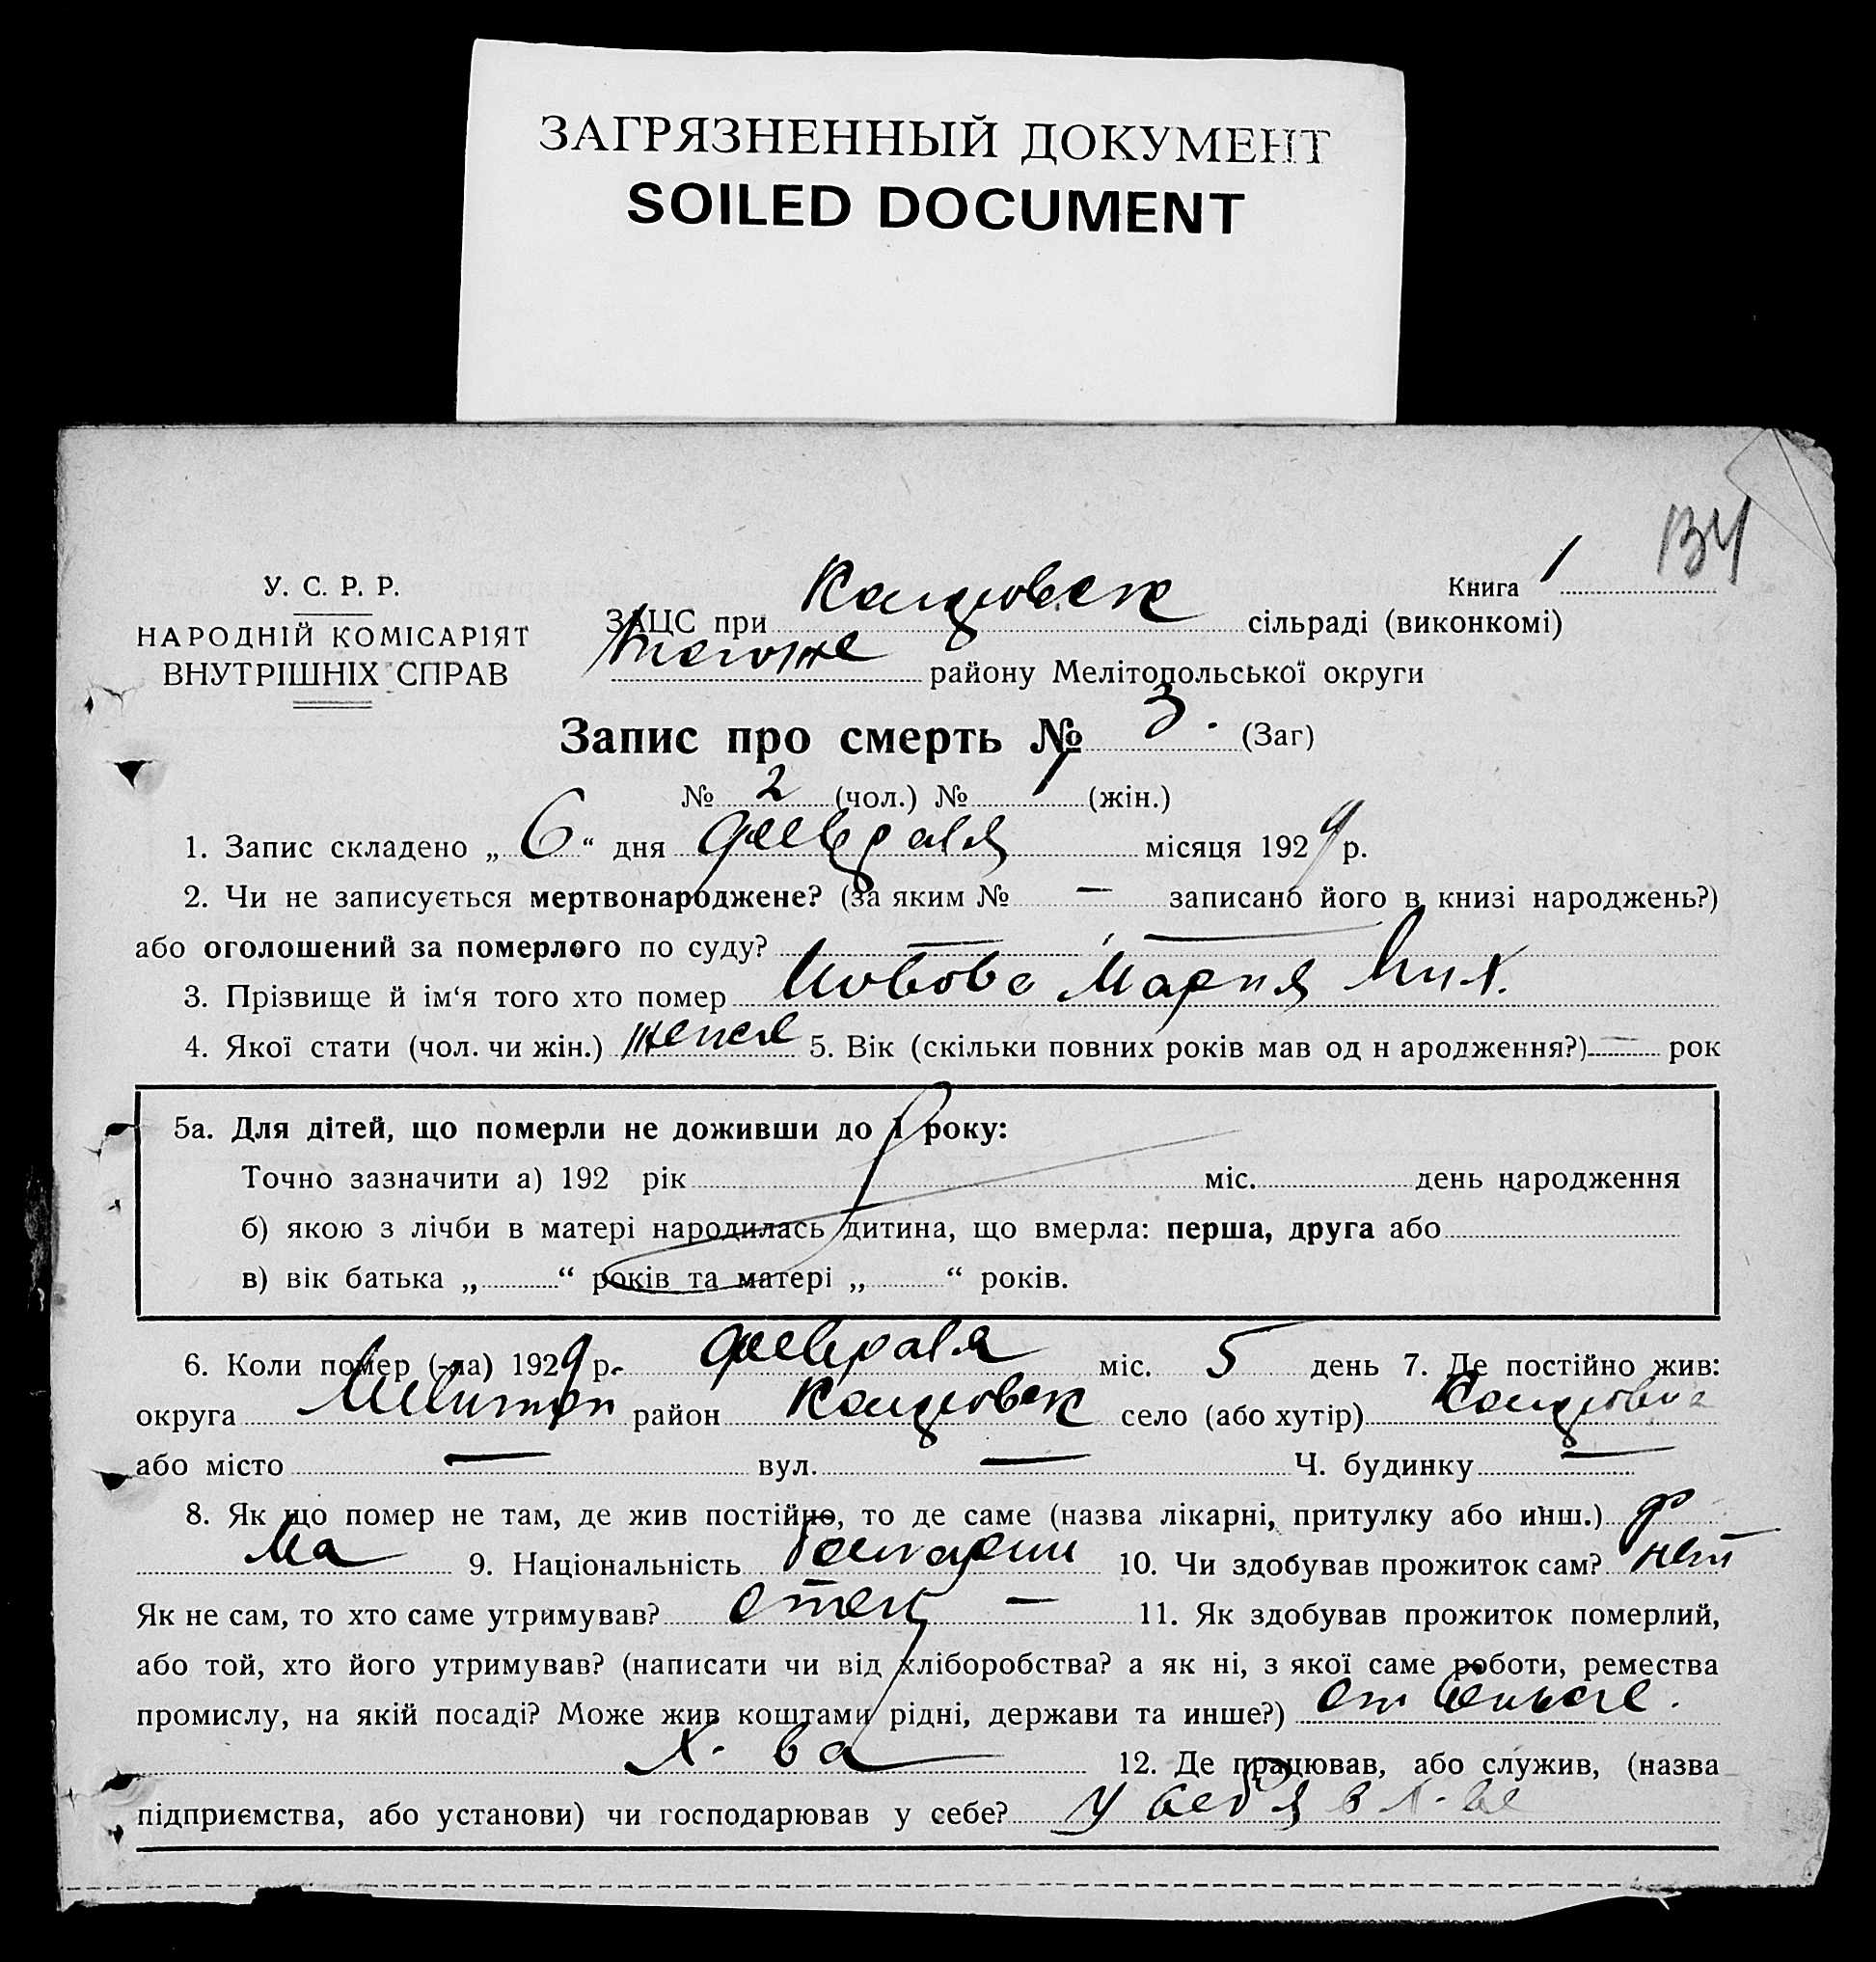 ЗАГРЯЗНЕННЫЙ ДОКУМЕНТ
SOILED DOCUMENT
134
У. С. Р. Р.
Книга 1
НАРОДНІЙ КОМІСАРІЯТ
ВНУТРІШНІХ СПРАВ
ЗАЦС при сільраді (виконкомі)
тогоже району Мелітопольської округи
Запис про смерть № 3. (Заг)
№ 2 (чол.) № 1 (жін.)
1. Запис складено „ 6 “ дня февраля місяця 1929 р.
2. Чи не записується мертвонароджене? (за яким № — записано його в книзі народжень?)
або оголошений за померлого по суду? — —
3. Прізвище й ім‘я того хто помер Мария Мих.
4. Якої стати (чол. чи жін.) 5. Вік (скільки повних років мав од н ародження?) — рок
5а. Для дітей, що померли не доживши до 1 року:
Точно зазначити а) 192 рік міс. день народження
б) якою з лічби в матері народилась дитина, що вмерла: перша, друга або
в) вік батька „ “ років та матері „ “ років.
6. Коли помер (-ла) 1929 р. февраля міс. 5 день 7. Де постійно жив:
округа Мелитоп район село (або хутір)
або місто — вул. — Ч. будинку —
8. Як що помер не там, де жив постійно, то де саме (назва лікарні, притулку або инш.) до
ма 9. Національність болгарин 10. Чи здобував прожиток сам? нет
Як не сам, то хто саме утримував? отец — 11. Як здобував прожиток померлий,
або той, хто його утримував? (написати чи від хліборобства? а як ні, з якої саме роботи, ремества
промислу, на якій посаді? Може жив коштами рідні, держави та инше?) от сельск.
х-ва 12. Де працював, або служив, (назва
підприємства, або установи) чи господарював у себе? у себя в х-ве